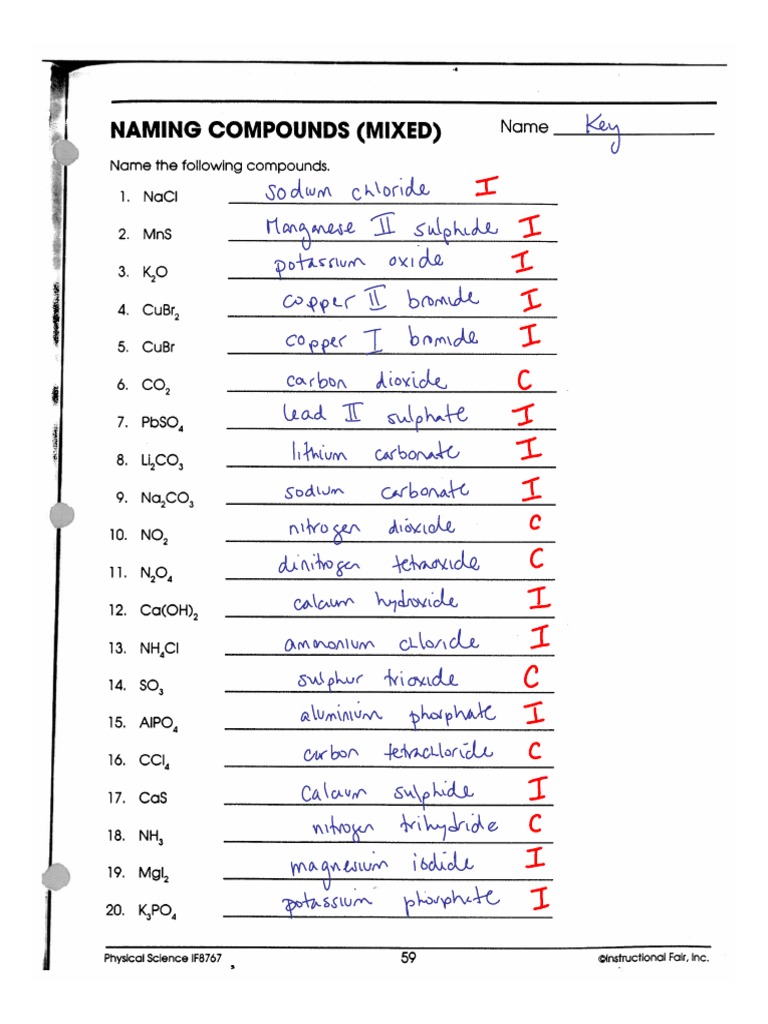 NAMING COMPOUNDS (MIXED) Name Key
Name the following compounds.
1. NaCl sodium chloride I
2. MnS Manganese II sulphide I
3. K₂O potassium oxide I
4. CuBr₂ copper II bromide I
5. CuBr copper I bromide I
6. CO₂ carbon dioxide C
7. PbSO₄ lead II sulphate I
8. Li₂CO₃ lithium carbonate I
9. Na₂CO₃ sodium carbonate I
10. NO₂ nitrogen dioxide C
11. N₂O₄ dinitrogen tetraoxide C
12. Ca(OH)₂ calcium hydroxide I
13. NH₄Cl ammonium chloride I
14. SO₃ sulphur trioxide C
15. AlPO₄ aluminium phosphate I
16. CCl₄ carbon tetrachloride C
17. CaS Calcium sulphide I
18. NH₃ nitrogen trihydride C
19. MgI₂ magnesium iodide I
20. K₃PO₄ potassium phosphate I
Physical Science IF8767 59 ©Instructional Fair, Inc.